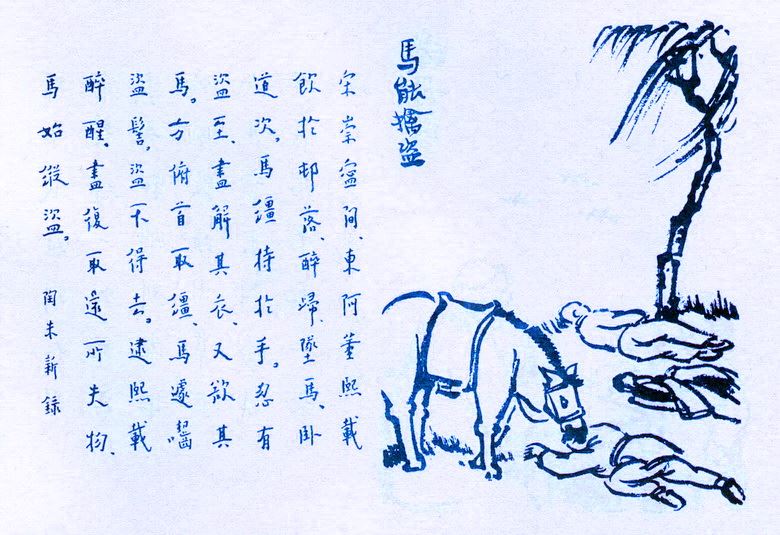 馬能擒盜
宋崇寧間、東阿董熙載
飲於邨落、醉歸、墜馬、臥
道次。馬韁持於手。忽有
盜至、盡解其衣、又欲其
馬。方俯首取韁、馬遽囓
盜髻。盜不得去。逮熙載
醉醒。盡復取還所失物、
馬始縱盜。 陶朱新錄